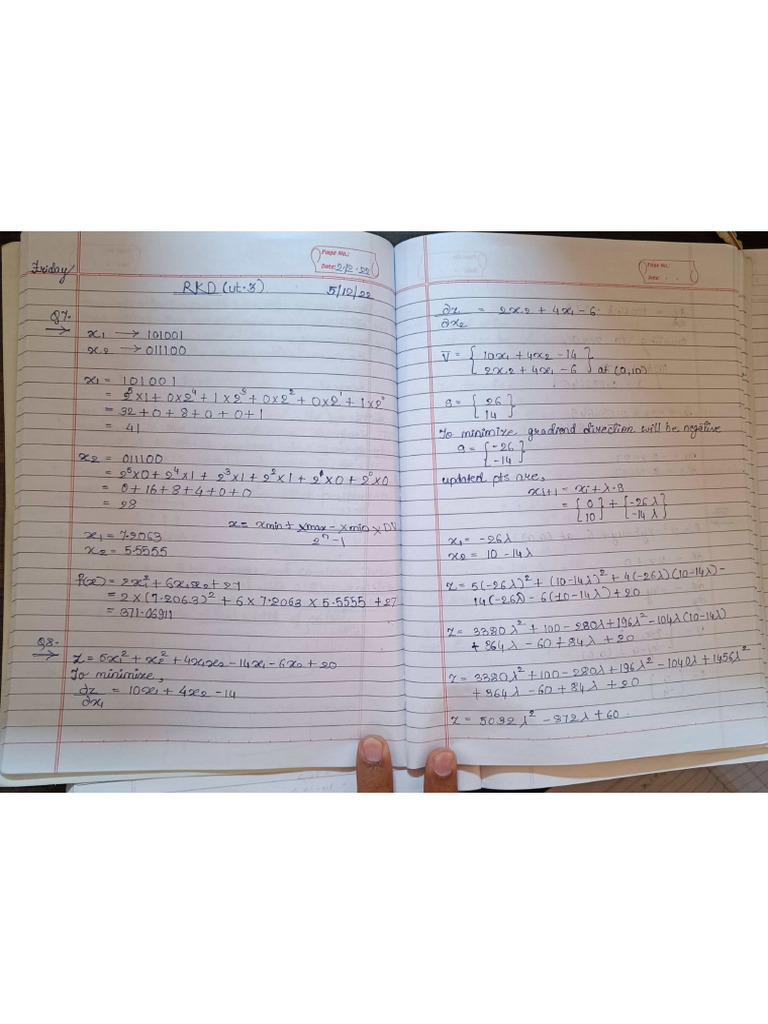 Page No.:
Date: 2.12.22
Friday
RKD (ut-3) 5/12/22
Q7.
→ x₁ → 101001
x₂ → 011100
x₁ = 101001
= 2⁵×1 + 0×2⁴ + 1×2³ + 0×2² + 0×2¹ + 1×2⁰
= 32+0+8+0+0+1
= 41
x₂ = 011100
= 2⁵×0 + 2⁴×1 + 2³×1 + 2²×1 + 2¹×0 + 2⁰×0
= 0+16+8+4+0+0
= 28
x = xmin + (xmax - xmin)/(2ⁿ-1) × DV
x₁ = 7.2063
x₂ = 5.5555
f(x) = 2x₁² + 6x₁x₂ + 27
= 2×(7.2063)² + 6 × 7.2063 × 5.5555 + 27
= 371.06911
Q8.
→ z = 5x₁² + x₂² + 4x₁x₂ - 14x₁ - 6x₂ + 20
To minimize,
∂z/∂x₁ = 10x₁ + 4x₂ - 14
Page No.:
Date: . .
∂z/∂x₂ = 2x₂ + 4x₁ - 6
∇ = { 10x₁ + 4x₂ - 14
2x₂ + 4x₁ - 6 } at (0,10)
s = { 26
14 }
To minimize gradiend direction will be negative
s = { -26
-14 }
updated pts are,
xi+1 = xi + λ.s
= { 0
10 } + { -26λ
-14λ }
x₁ = -26λ
x₂ = 10 - 14λ
z = 5(-26λ)² + (10-14λ)² + 4(-26λ)(10-14λ) -
14(-26λ) - 6(10-14λ) + 20
z = 3380λ² + 100 - 280λ + 196λ² - 104λ(10-14λ)
+ 364λ - 60 + 84λ + 20
z = 3380λ² + 100 - 280λ + 196λ² - 1040λ + 1456λ²
+ 364λ - 60 + 84λ + 20
z = 5032λ² - 872λ + 60.